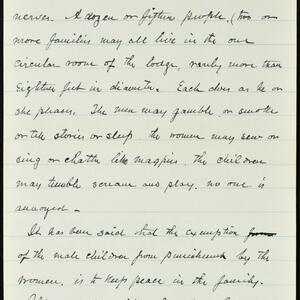 nerves. A dozen or fifteen people, (two or
more families may all live in the one
circular room of the lodge, rarely more than
eighteen feet in diameter. Each does as he or
she pleases. The men may gamble, or smoke
or tell stories or sleep, the women may sew or
sing or chatter like magpies, the children
may tumble scream and play, no one is
annoyed.
It has been said that the exemption
of the male children from punishment by the
women, is to keep peace in the family.